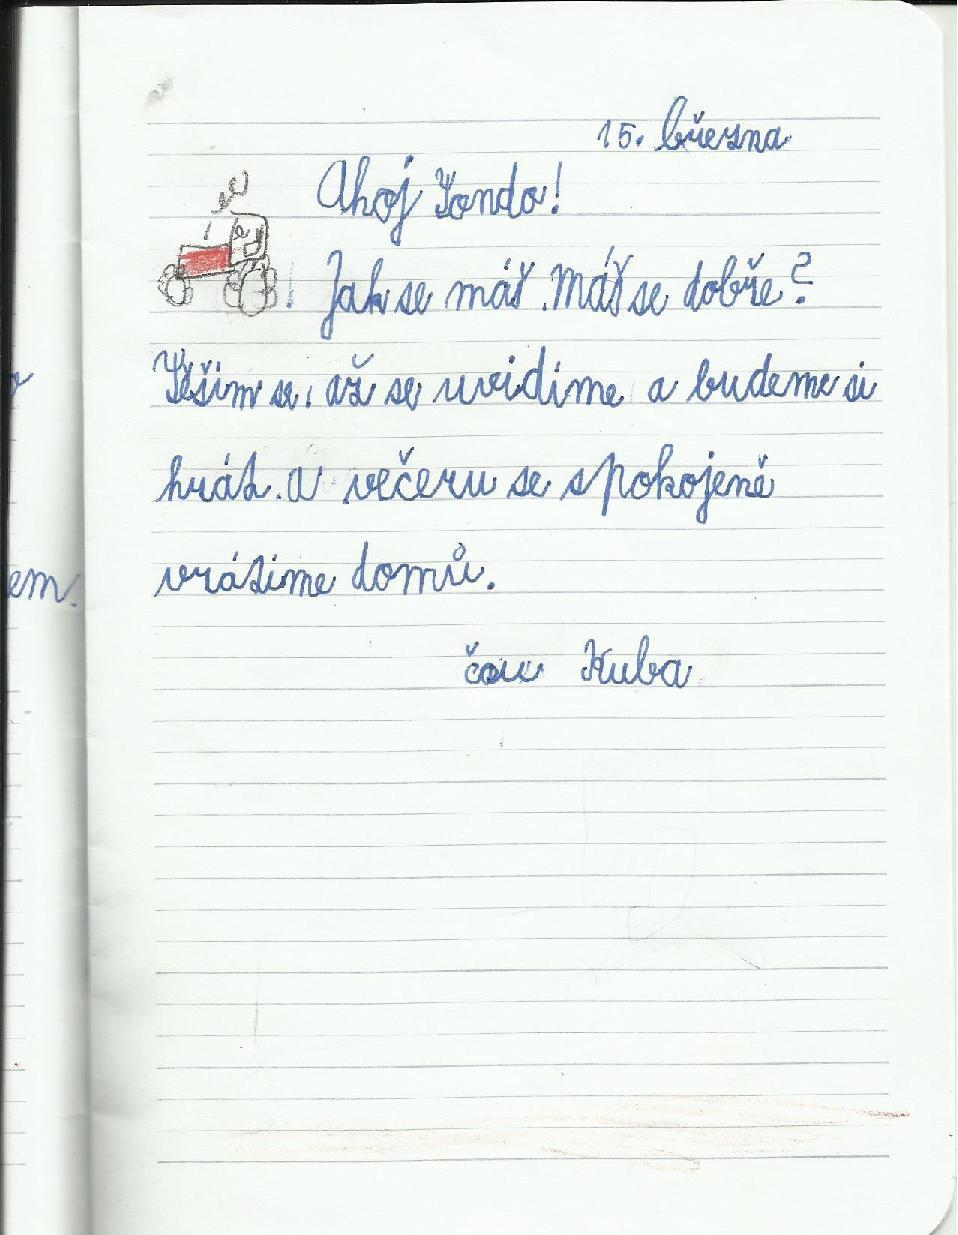 15. března
Ahoj Tondo!
Jak se máš. Máš se dobře?
Těšim se, až se uvidíme a budeme si
hrát. a večeru se spokojeně
vrátíme domů.
em.
čau Kuba